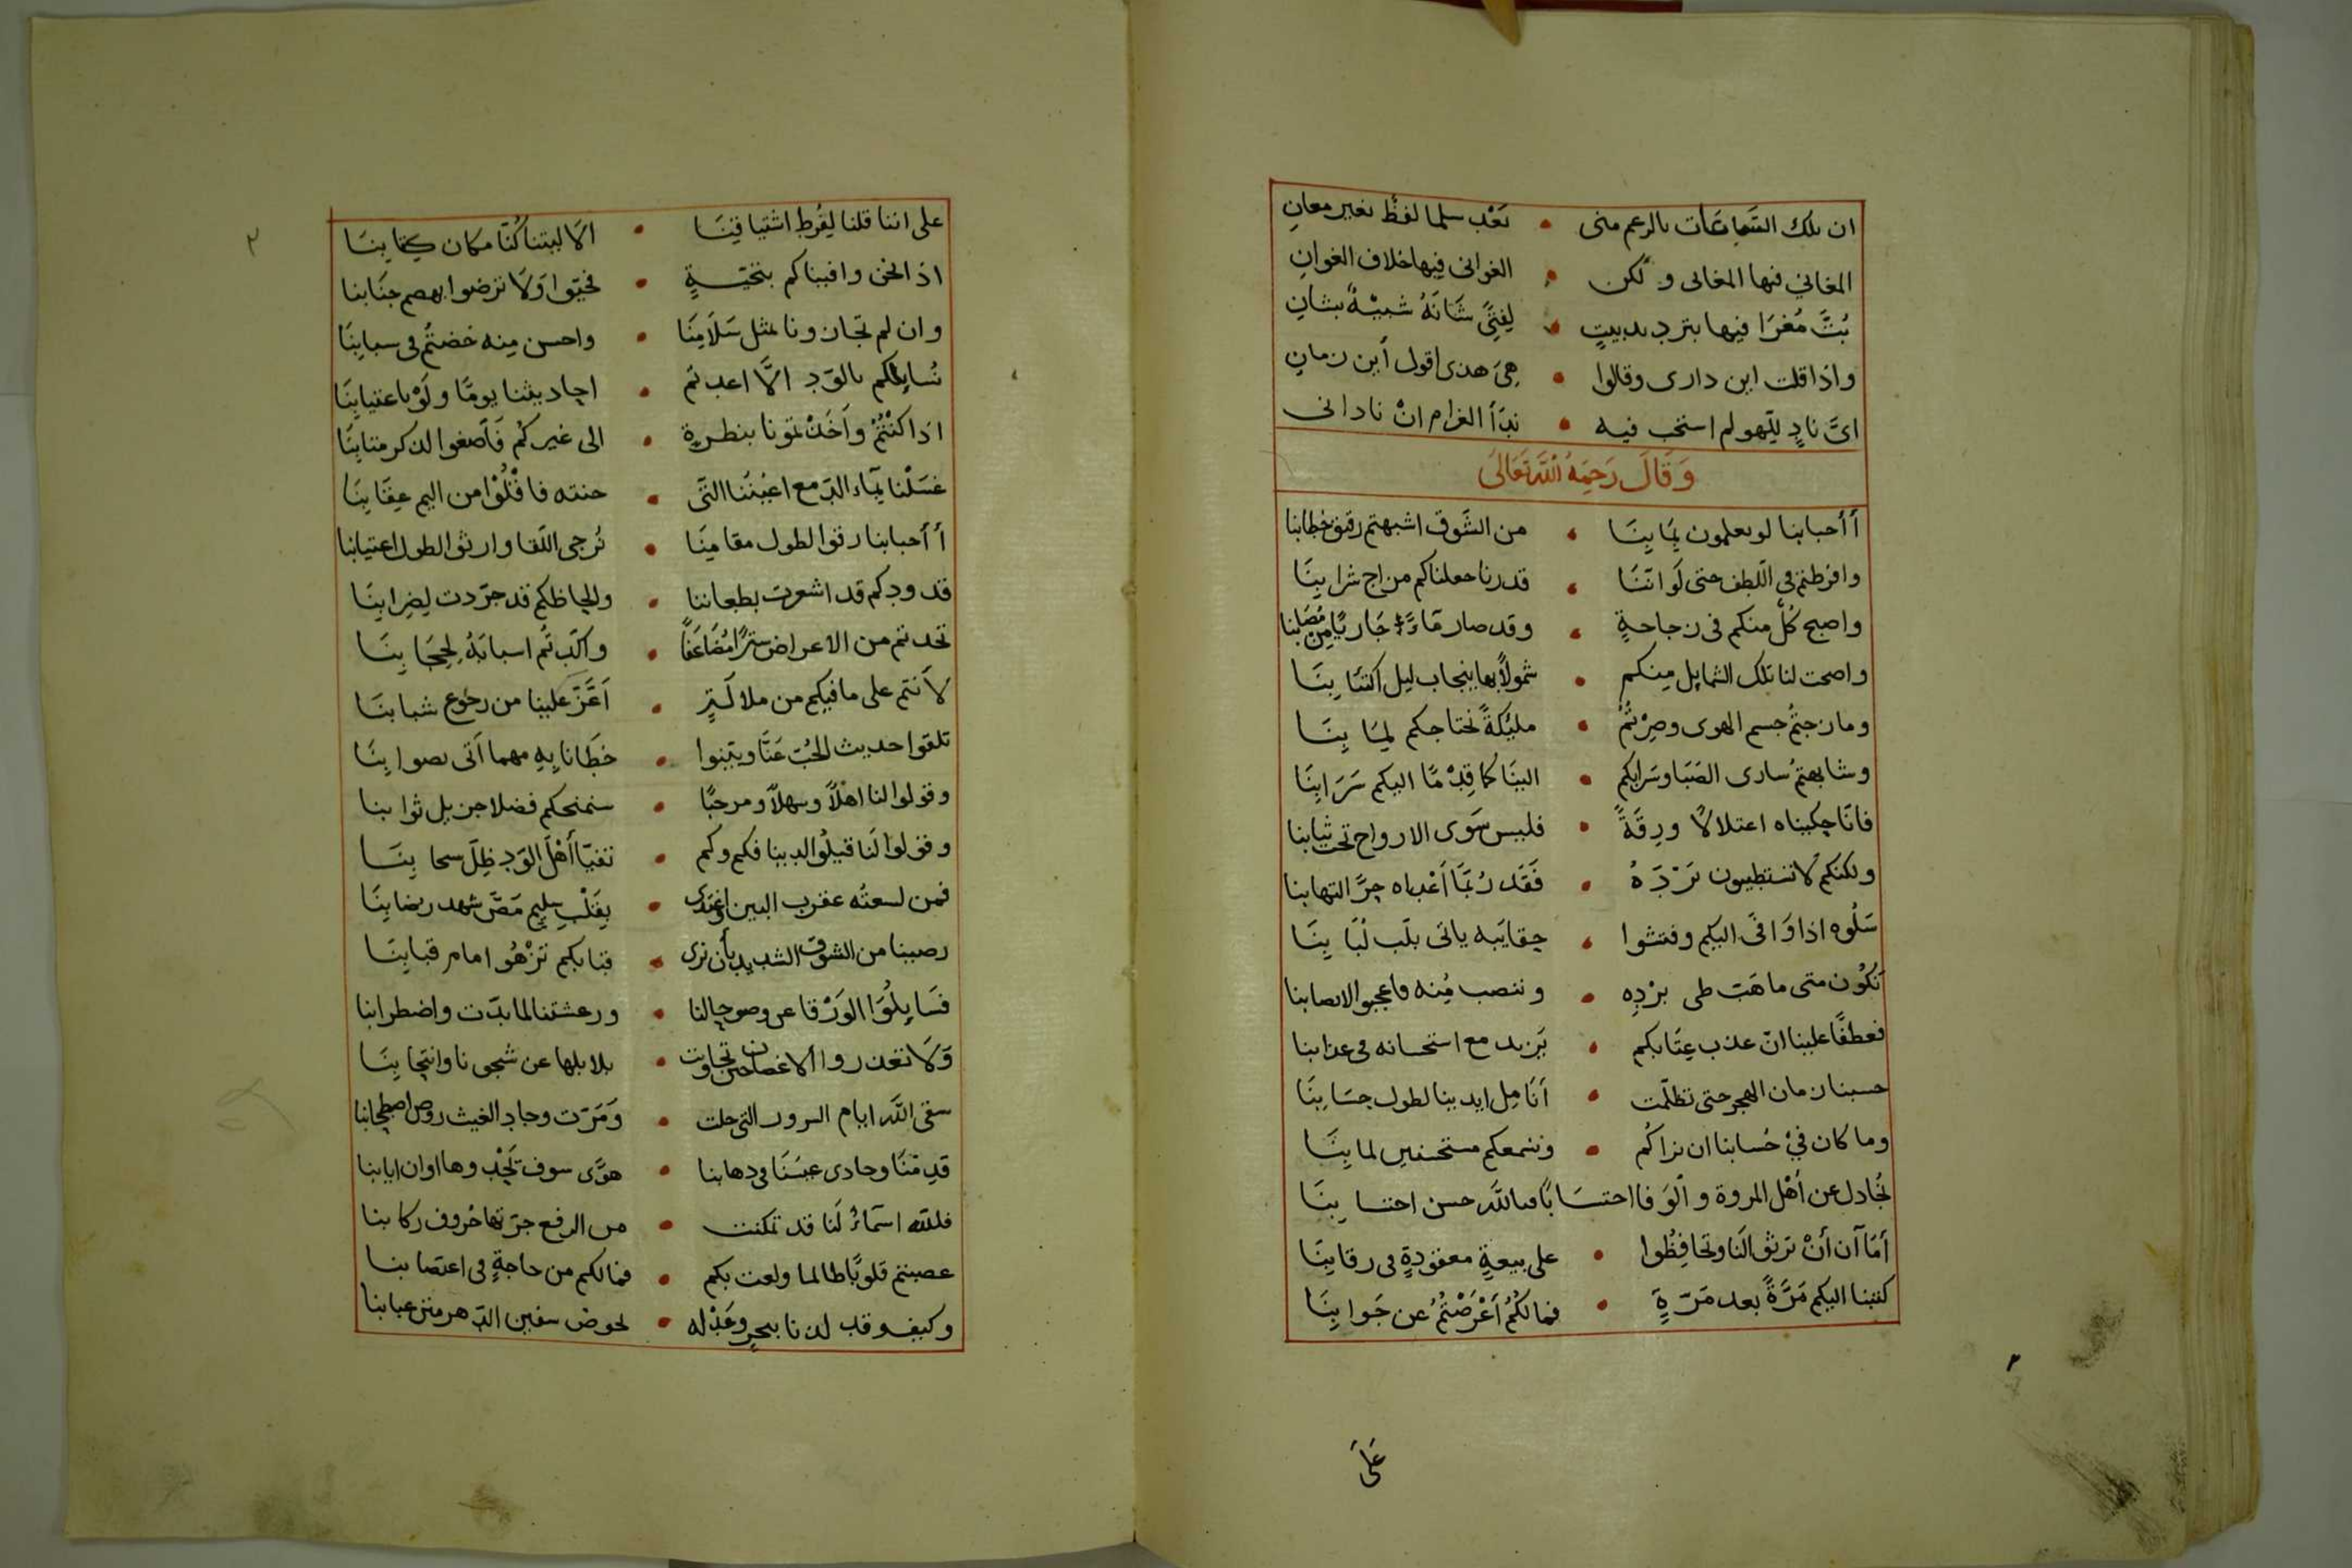 ان تلك السماعات بالرغم منى • بَعْد سلما لفظ بغير معانِ
المغاني فيها المغانى ولكن • الغوانى فيها خلاف الغوانِ
بُتُّ مُغرَا فيها بترديد بيتٍ • لِفتًى شَانَهُ شبيْهٌ بشانِ
واذا قلت اين دارى وقالوا • هِىَ هذى اقول أين زمانِ
اىَّ نادٍ للّهو لم استجب فيه • نِدَأ الغرام انْ نادانى
وَقَالَ رَحِمَهُ اللَّه تَعَالَى
أأحبابنا لو يعلمون بِمَا بِنَا • من الشَّوق اشبهتم رقيق خطابنا
وافرطتم فى اللّطف حتى لَو انّنَا • قدرنا جعلناكم مزاج شرابِنَا
واصبح كُلٌّ منكم فى زجاجةٍ • وقد صار مَاءً جَاريًا من مُصَابنا
واضحت لنا تلك الشمايل مِنكم • شمولاً بها ينجاب ليل اكتئابِنَا
ومازجتُم جسم الهوى وصِرْتُمُ • مليّكةً نحتاجكم لِمَا بِنَا
وشابهتمُ سارى الصَبَا وسَرَابكم • الينَا كما قِدْمًا اليكم سَرَابِنَا
فانّا حكيناه اعتلالاً ورِقّةً • فليس سَوى الارواح تحت ثيابنا
ولكنكم لا تستطيبون بَرْدَهُ • فَقَد رُبَّمَا أعْداه حرّ التهابنا
سَلُوه اذا وَافَى اليكم وفتشوا • حقايبه ياتى بلُب لُبَابِنَا
تكُون متى ما هَبت طى بُرْدِه • وننصب مِنه فاعجبوا لانصابنا
فعطفًا علينا انّ عذب عِتَابكم • يَزيد مع استحسانه فى عذابنا
حسبنا زمان الهجر حتى تظلّمت • أنَامِل ايدينا لطول حِسَابِنَا
وما كان فيْ حُسابنا ان نراكُم • ونسمعكم مستحسنين لما بِنَا
نُجادل عن أهْل المروة والوَفا احتسَابًا فياللَّه حسن احتسابِنَا
أمَا آن أنْ ترثوا لَنَا وتحافِظُوا • على بيعةٍ معقودةٍ فى رقابِنَا
كتبنا اليكم مَرَّةً بعد مَرّةٍ • فما لكُمُ أَعْرَضْتُمُ عن جَوابِنَا
عَلَى
٢
على اننا قلنا لِفُرط اشتياقِنَا • الَا ليتنا كُنَّا مكان كِتابنَا
اذا نحن وافيناكم بتحيّةٍ • فحيّوا وَلَا ترضوا بهضم جنَابنا
وان لم تجازونا بمثل سَلَامِنَا • واحسن مِنه خضتُم فى سبابِنَا
نُسايلكم بالوّد الَّا اعدتم • احاديثنا يومًا ولَوْ باعتيابِنَا
اذا كنْتُمُ وآخَذْتمونا بنظرةٍ • الى غيركُم فَأصغوا لذكر متابِنَا
غسَلْنا بِمآء الدّمع اعيُنَنا التى • جنته فاقْلُوْا من اليم عِقَابِنَا
أأحبابنا رقوا لطول مقامِنَا • نُرجى اللّقا وارثوا لطول اعتيابنا
قدودكم قد اشعرت بطعاننا • ولحاظكم قد جرّدت لِضِرابِنَا
تخذتم من الاعراض سترًا مُضَاعَفًا • واكّدتُم اسبابَهُ لِحجَابِنَا
لأنتم على ما فيكم من ملالَةٍ • أعَّزّ علينا من رجُوع شبابنَا
تلقوا حديث الحُبّ عَنَّا ويتبنوا • خطَانا بِهِ مهما أتى بصوابِنَا
وقولوا لنا اهلاً وسهلاً ومرحبًا • سنمنحكم فضلا جزيل ثوابنا
وقولوا لَنا قيلُوا لدينا فكم وكم • تفيّا أهْلُ الوّد ظِلّ سحابِنَا
فمن لسعتْه عقرب البين واغتدى • بِقَلْبٍ سليمٍ مَصَّ شهد رضابِنَا
رضينا من الشوق الشديد بأن نرى • قبابكم تَزْهُوا امام قبابِنَا
فسَايِلُوَا الوَرْقا عن وضوح حالنا • ورعشتنا لما بدت واضطرابنا
وَلَا تعذروا الاغصان حتى تجاوبت • بلابلها عن شجونا وانتحابِنَا
سقى اللَّه ايام السرور التى خلت • وَمَرّت وجاد الغيث روض اصطحابنا
قدِمْنَا وحادى عيسَنَا فى دهابنا • هوًى سوف يَحْدُوها اوان ايابنا
فللّه اسمآءٌ لَنا قد تمكنت • من الرفع جرّتها حُروف ركابنا
غصبتم قلوبًا طالما ولعت بكم • فما لكم من حاجةٍ فى اغتصابنا
وكيف وقد لذنا ببحرٍ وعَدْله • لخوض سفين الدّهر متن عبابنا